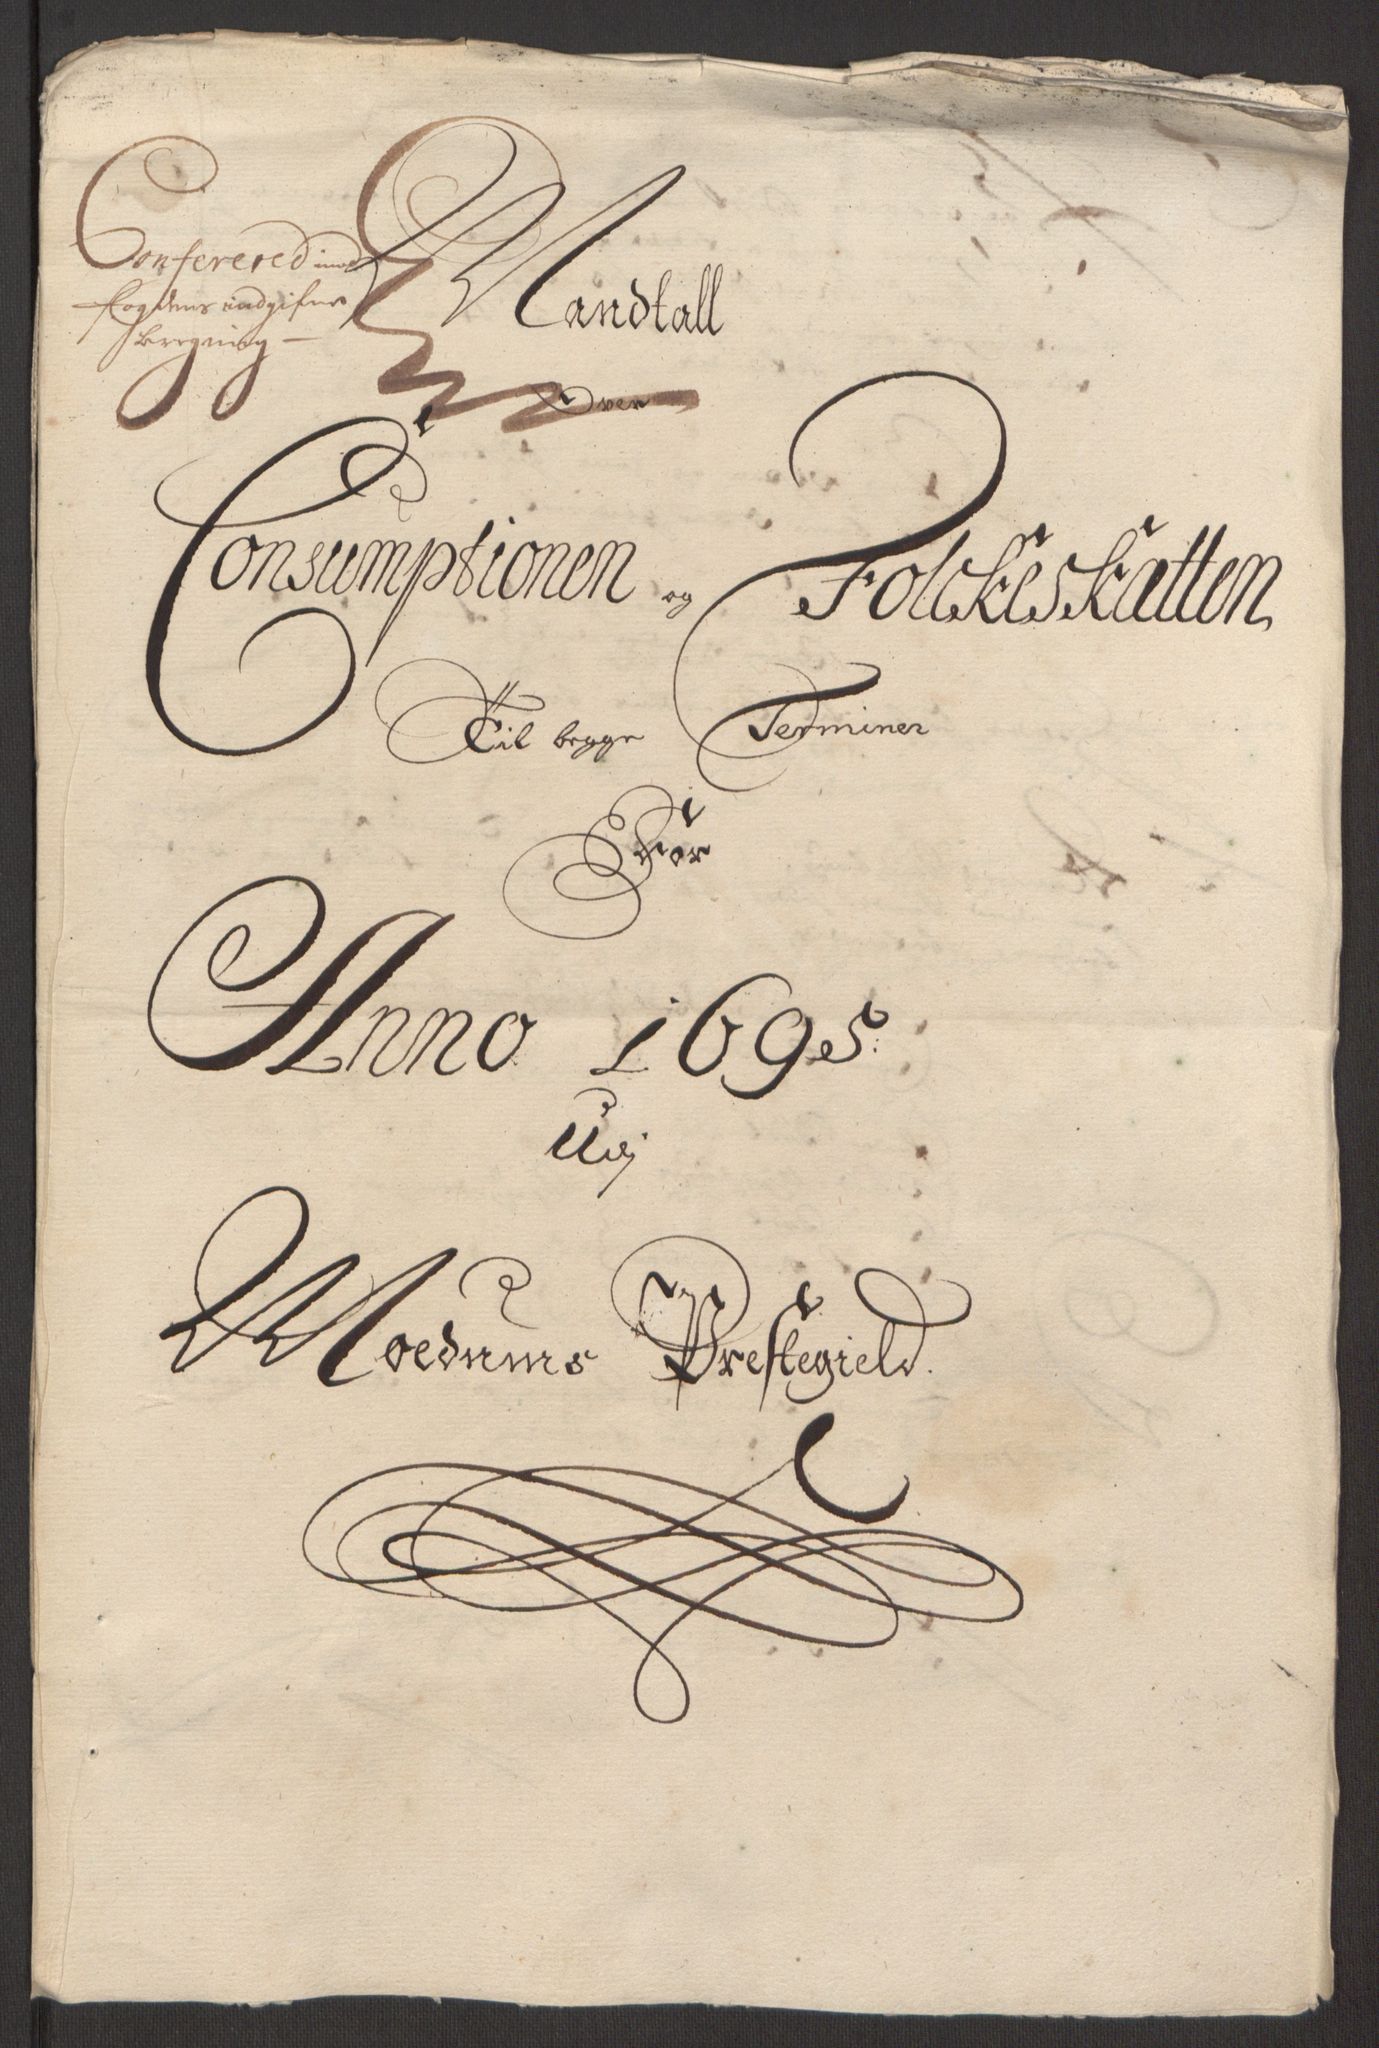 Conferered imod
fogdens indgifne
Beregning
Mandtall
Over
Consumptionen og Folckeskatten
Til begge Terminer
For
Anno 1695.
Udj
Moedums Prestegield.